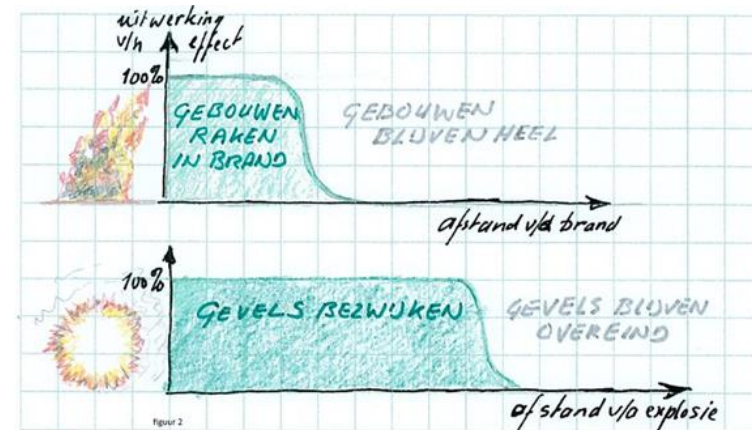 uitwerking
v/h effect
100%
GEBOUWEN
RAKEN
IN BRAND
GEBOUWEN
BLIJVEN HEEL
afstand v/d brand
100%
GEVELS BEZWIJKEN
GEVELS BLIJVEN
OVEREIND
afstand v/d explosie
figuur 2